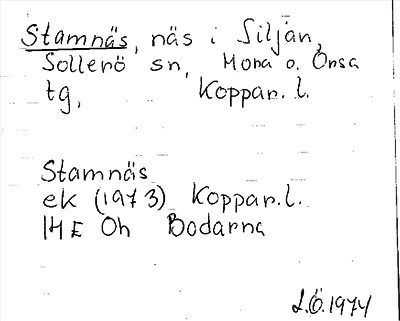 Stamnäs, näs i Siljan,
Sollerö sn, Mora o. Orsa
tg, Koppar. l.
Stamnäs
ek (1973) Koppar. l.
14E Oh Bodarna
L.Ö. 1974